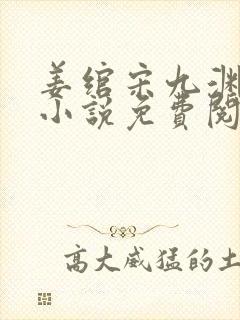 姜绾宋九渊
小說免費閱
高大威猛的土